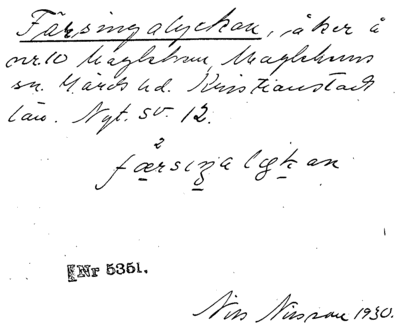 Färsingalyckan, åker å
nr 10 Maglehem, Maglehems
sn. Gärds hd. Kristianstads
län. Nyt. sv. 12.
2
færsiŋa lykan
Nr 5351.
Nils Nilsson 1930.